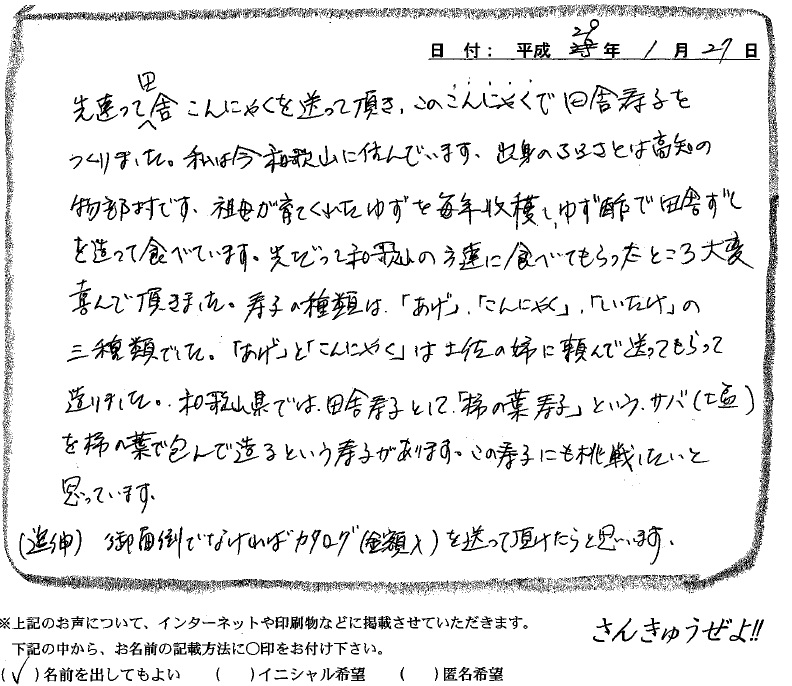 日 付： 平成 20 年 1 月 27 日
先達って田舎こんにゃくを送って頂き、このこんにゃくで田舎寿子を
つくりました。私は今和歌山に住んでいます、出身のふるさとは高知の
物部村です、祖母が育てくれたゆずを毎年収穫し、ゆず酢で田舎ずし
を造って食べています。先だって和歌山の方達に食べてもらったところ大変
喜んで頂きました。寿子の種類は、「あげ」、「こんにゃく」、「しいたけ」の
三種類でした。「あげ」と「こんにゃく」は土佐の姉に頼んで送ってもらって
造りました。和歌山県では、田舎寿子として、「柿の葉寿子」という、サバ（塩）
を柿の葉で包んで造るという寿子があります。この寿子にも挑戦したいと
思っています。
（追伸） 御面倒でなければカタログ（金額入）を送って頂けたらと思います、
※上記のお声について、インターネットや印刷物などに掲載させていただきます。
下記の中から、お名前の記載方法に○印をお付け下さい。
さんきゅうぜよ!!
(✓)名前を出してもよい ( )イニシャル希望 ( )匿名希望